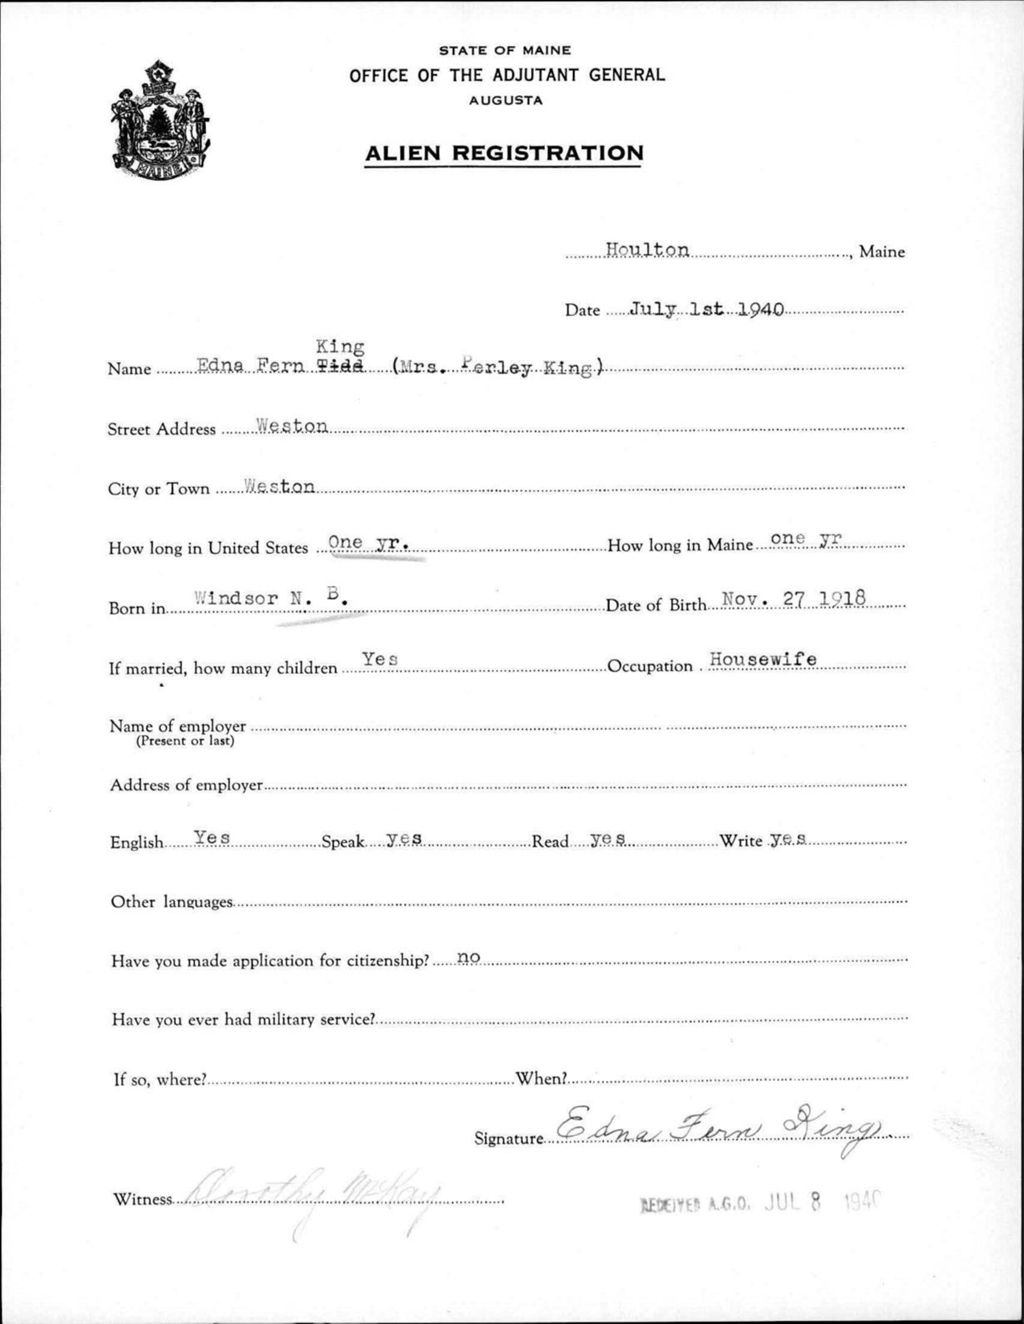 STATE OF MAINE
OFFICE OF THE ADJUTANT GENERAL
AUGUSTA
ALIEN REGISTRATION
MAINE
Houlton, Maine
Date July 1st 1940
King
Name Edna Fern Tidd (Mrs. Perley King)
Street Address Weston
City or Town Weston
How long in United States One yr. How long in Maine one yr
Born in Windsor N. B. Date of Birth Nov. 27 1918
If married, how many children Yes Occupation Housewife
Name of employer
(Present or last)
Address of employer
English Yes Speak yes Read yes Write yes
Other languages
Have you made application for citizenship? no
Have you ever had military service?
If so, where? When?
Signature Edna Fern King
Witness Dorothy McKay
RECEIVED A.G.O. JUL 8 1940